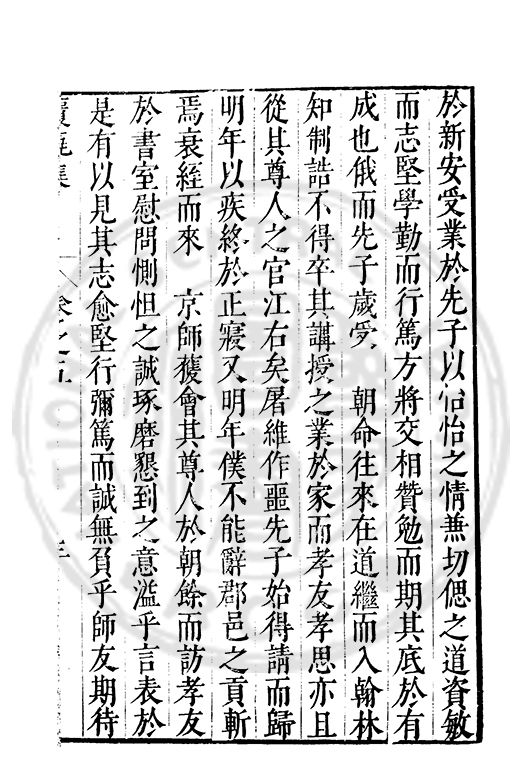 於新安受業於先子以怡怡之情兼切偲之道資敏
而志堅學勤而行篤方將交相贊勉而期其底於有
成也俄而先子歲受　朝命往來在道繼而入翰林
知制誥不得卒其講授之業於家而孝友孝思亦且
從其尊人之官江右矣屠維作噩先子始得請而歸
明年以疾終於正寢又明年僕不能辭郡邑之貢斬
焉衰絰而來　京師獲會其尊人於朝餘而訪孝友
於書室慰問惻怛之誠琢磨懇到之意溢乎言表於
是有以見其志愈堅行彌篤而誠無負乎師友期待
集　卷之五